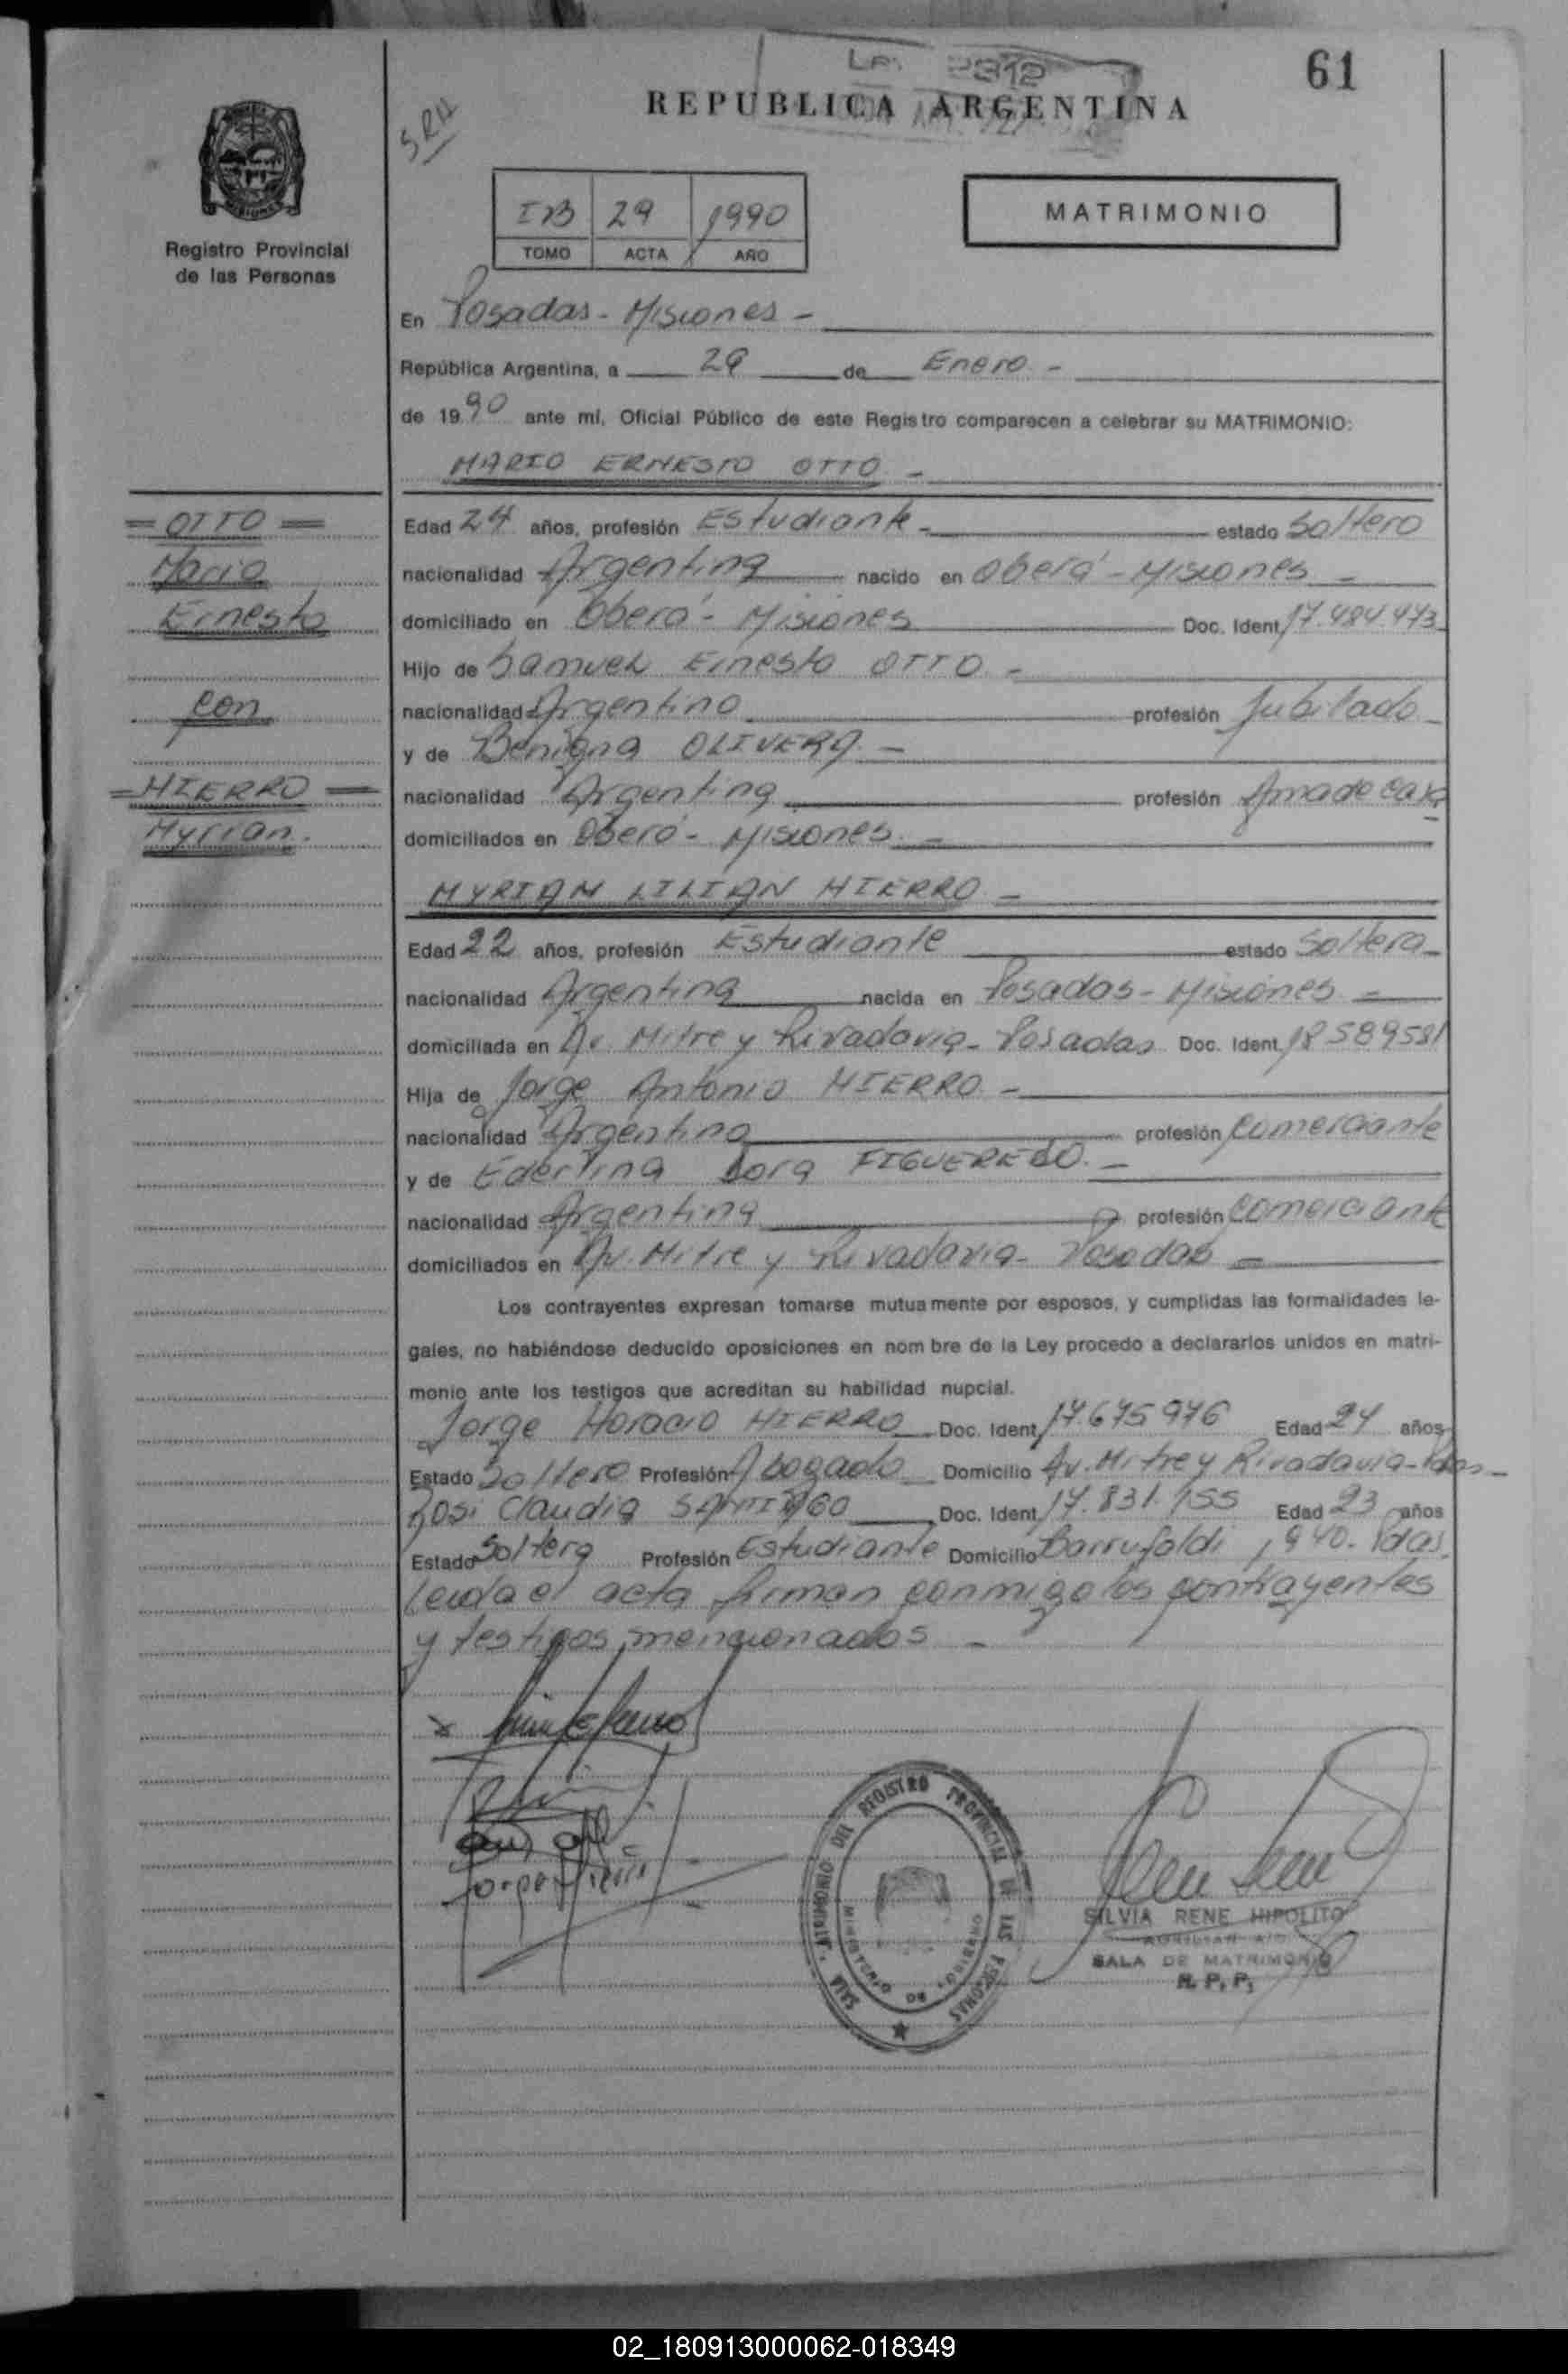 61
REPUBLICA ARGENTINA
SRH
Registro Provincial
de las Personas
IB 29 1990
TOMO ACTA AÑO
MATRIMONIO
En Posadas - Misiones -
República Argentina, a 29 de Enero -
de 1990 ante mí, Oficial Público de este Registro comparecen a celebrar su MATRIMONIO:
MARIO ERNESTO OTTO -
= OTTO =
Mario
Ernesto
con
= HIERRO =
Myrian.
Edad 24 años, profesión Estudiante - estado Soltero
nacionalidad Argentina nacido en Oberá - Misiones -
domiciliado en Oberá - Misiones Doc. Ident. 17.484.473
Hijo de Samuel Ernesto OTTO -
nacionalidad Argentino profesión Jubilado -
y de Benigna OLIVERA. -
nacionalidad Argentina profesión Ama de casa
domiciliados en Oberá - Misiones. -
MYRIAN LILIAN HIERRO -
Edad 22 años, profesión Estudiante estado Soltera -
nacionalidad Argentina nacida en Posadas - Misiones -
domiciliada en Av. Mitre y Rivadavia - Posadas Doc. Ident. 18589581
Hija de Jorge Antonio HIERRO -
nacionalidad Argentino profesión Comerciante
y de Ederlina Dora FIGUEREDO. -
nacionalidad Argentina profesión Comerciante
domiciliados en Av. Mitre y Rivadavia - Posadas -
Los contrayentes expresan tomarse mutuamente por esposos, y cumplidas las formalidades le-
gales, no habiéndose deducido oposiciones en nombre de la Ley procedo a declararlos unidos en matri-
monio ante los testigos que acreditan su habilidad nupcial.
Jorge Horacio HIERRO Doc. Ident. 17.675976 Edad 24 años
Estado Soltero Profesión Abogado Domicilio Av. Mitre y Rivadavia - Pdas -
Rosi Claudia SANTIAGO Doc. Ident. 17.831.155 Edad 23 años
Estado Soltera Profesión Estudiante Domicilio Barrufaldi 1940. Pdas.
Leida el acta firman conmigo los contrayentes
y testigos mencionados -
SALA MATRIMONIO DEL REGISTRO PROVINCIAL DE LAS PERSONAS
MINISTERIO DE GOBIERNO
SILVIA RENE HIPOLITO
SALA DE MATRIMONIO
R. P. P.
02_180913000062-018349